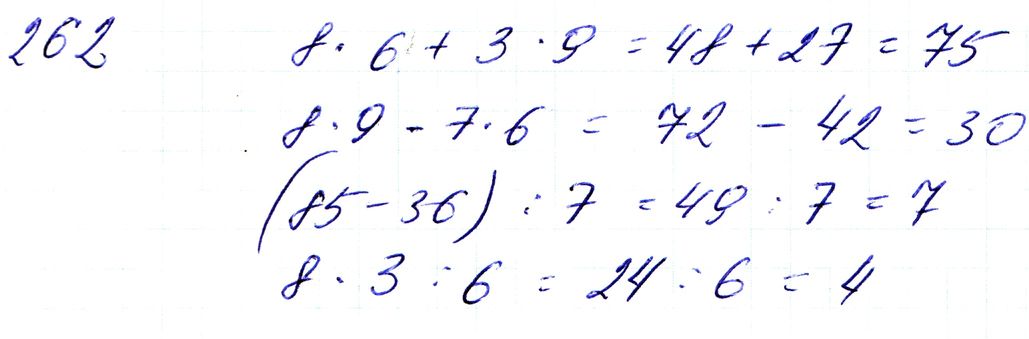 262 8 · 6 + 3 · 9 = 48 + 27 = 75
8 · 9 - 7 · 6 = 72 - 42 = 30
(85 - 36) : 7 = 49 : 7 = 7
8 · 3 : 6 = 24 : 6 = 4